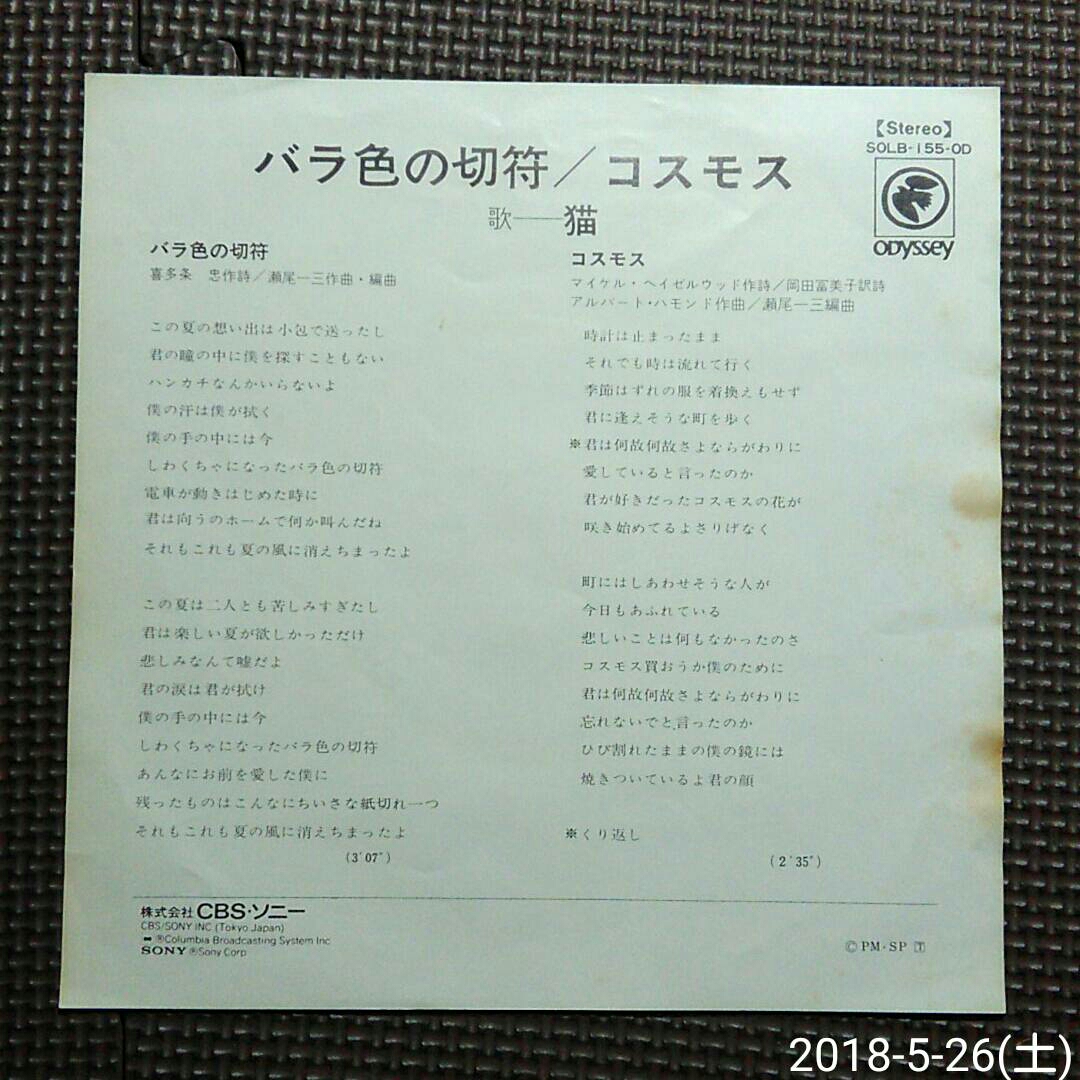 【Stereo】
SOLB-155-OD
バラ色の切符／コスモス
歌──猫
ODYSSEY
バラ色の切符
喜多条 忠作詩／瀬尾一三作曲・編曲
この夏の想い出は小包で送ったし
君の瞳の中に僕を探すこともない
ハンカチなんかいらないよ
僕の汗は僕が拭く
僕の手の中には今
しわくちゃになったバラ色の切符
電車が動きはじめた時に
君は向うのホームで何か叫んだね
それもこれも夏の風に消えちまったよ
この夏は二人とも苦しみすぎたし
君は楽しい夏が欲しかっただけ
悲しみなんて嘘だよ
君の涙は君が拭け
僕の手の中には今
しわくちゃになったバラ色の切符
あんなにお前を愛した僕に
残ったものはこんなにちいさな紙切れ一つ
それもこれも夏の風に消えちまったよ
(3'07")
コスモス
マイケル・ヘイゼルウッド作詩／岡田冨美子訳詩
アルバート・ハモンド作曲／瀬尾一三編曲
時計は止まったまま
それでも時は流れて行く
季節はずれの服を着換えもせず
君に逢えそうな町を歩く
※君は何故何故さよならがわりに
愛していると言ったのか
君が好きだったコスモスの花が
咲き始めてるよさりげなく
町にはしあわせそうな人が
今日もあふれている
悲しいことは何もなかったのさ
コスモス買おうか僕のために
君は何故何故さよならがわりに
忘れないでと言ったのか
ひび割れたままの僕の鏡には
焼きついているよ君の顔
※くり返し
(2'35")
株式会社 CBS・ソニー
CBS/SONY INC (Tokyo Japan)
®Columbia Broadcasting System Inc
SONY ®Sony Corp
©PM・SP 1
2018-5-26(土)